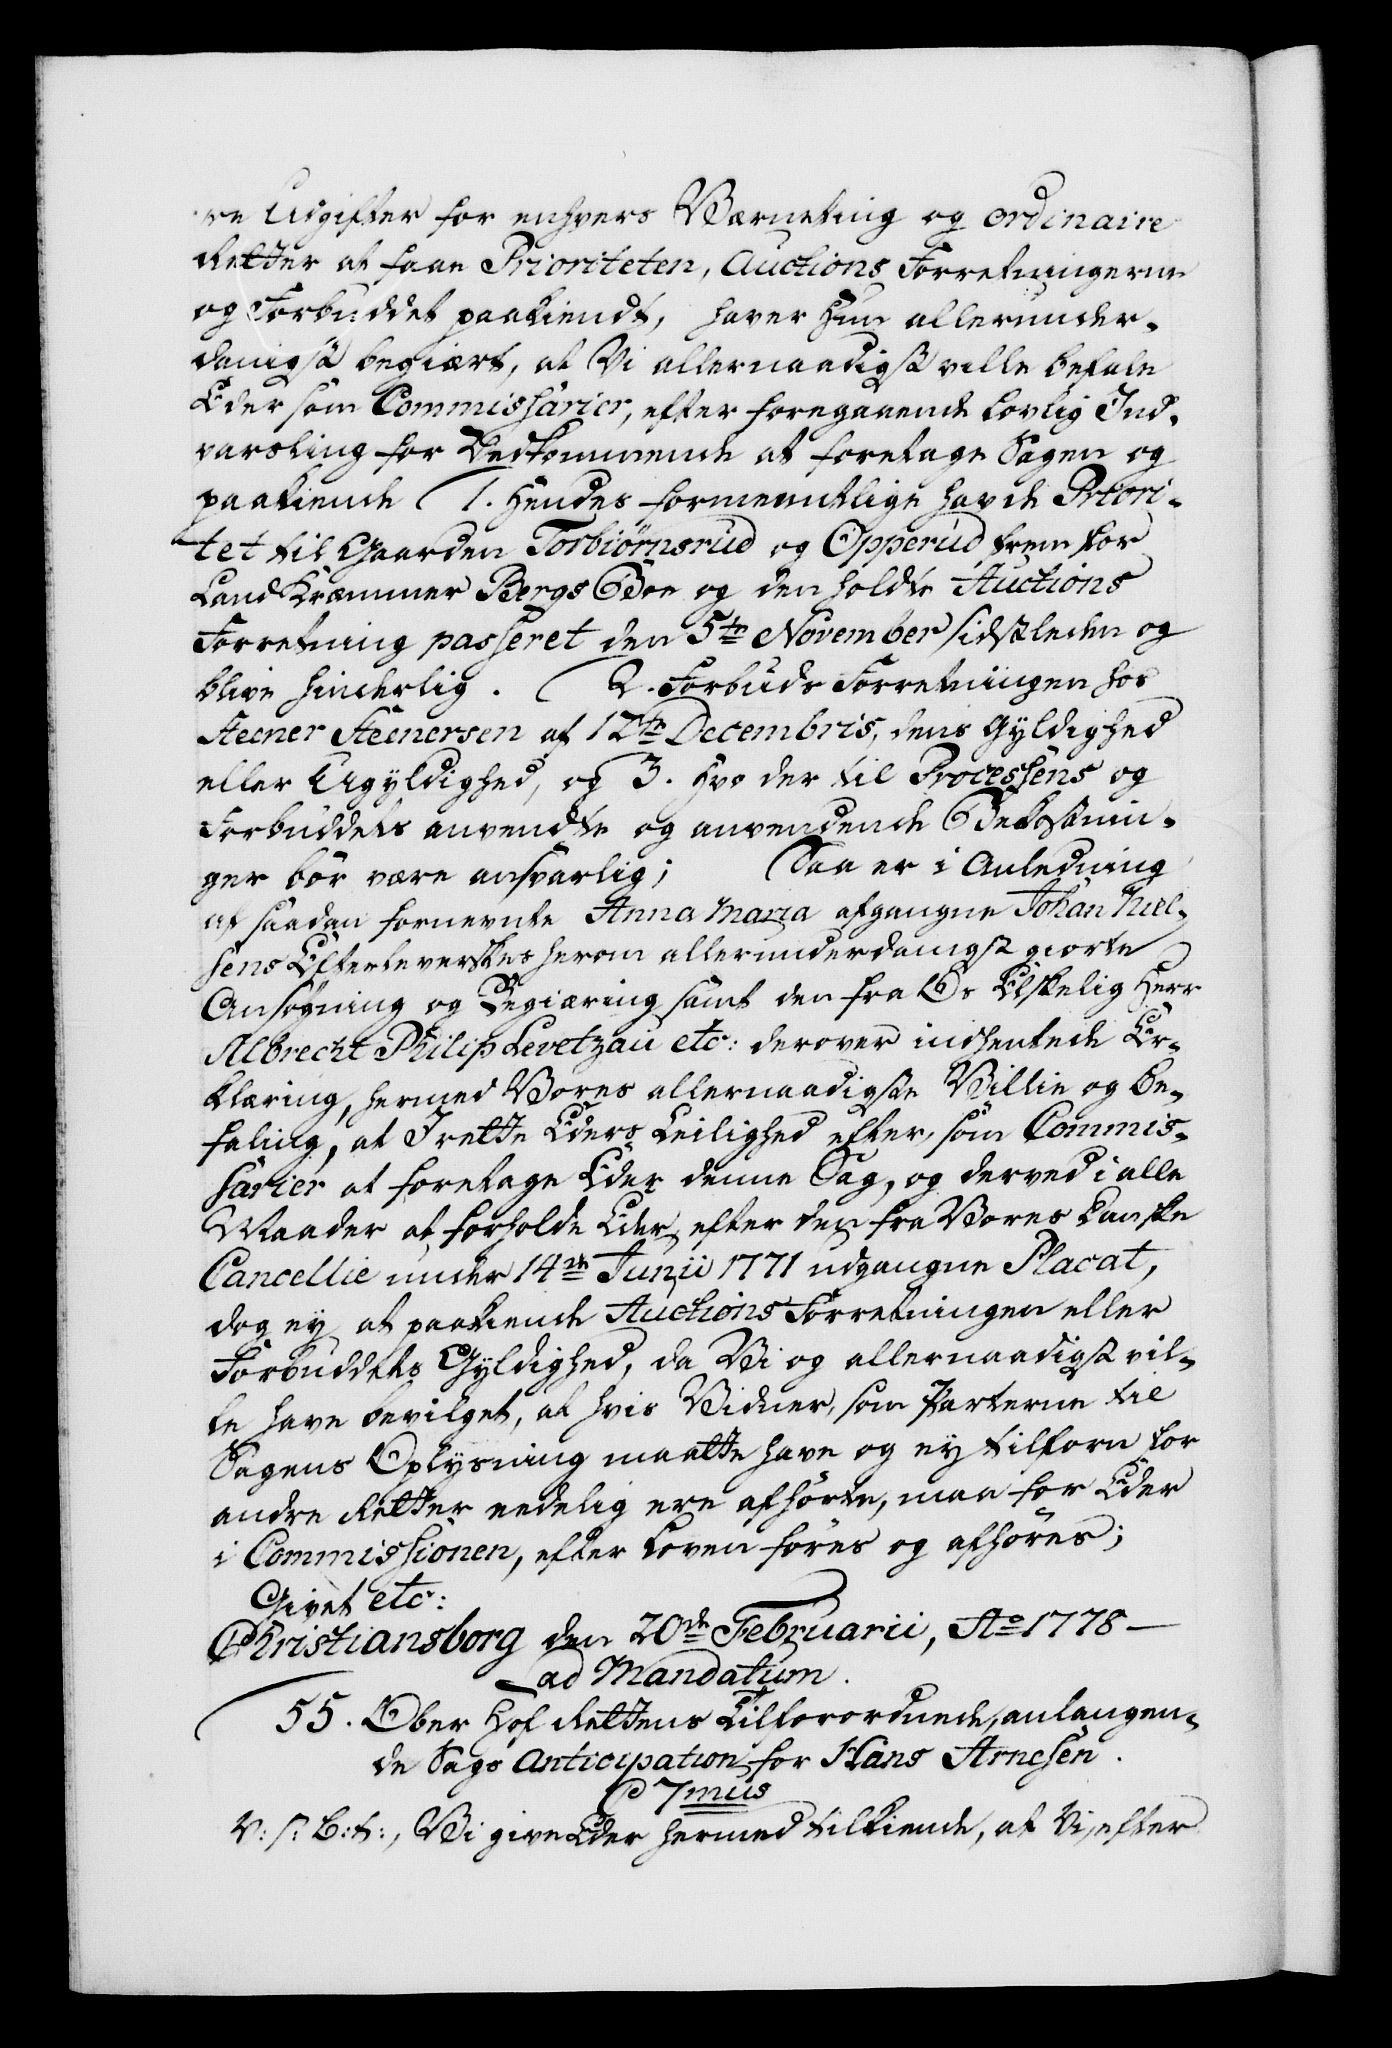 re Udgifter for enhvers Værneting og ordinaire
Retter at faae Prioriteten, Auctions Forretningerne
og Forbuddet paakiendt, haver Hun allerunder-
danigst begiært, at Vi allernaadigst ville befale
Eder som Commissarier, efter foregaaende lovlig Ind-
varsling for Vedkommende at foretage Sagen og
paakiende 1. Hendes formeentlige havde Priori-
tet til Gaarden Torbiörnsrud og Opperud frem for
Land Kræmmer Bergs Boe og den holdte Auctions
Forretning passeret den 5te November sidstleden og
blive hinderlig. 2. Forbuds Forretningen hos
Steener Steenersen af 12te Decembris, dens Gyldighed
eller Ugyldighed, og 3. Hvo der til Processens og
Forbuddets anvendte og anvendende Bekostnin-
ger bör være ansvarlig; Saa er i Anledning
af saadan fornevnte Anna Maria afgangne Johan Niel-
sens Efterleverskes herom allerunderdanigst giorte
Ansögning og Begiæring samt den fra Os Elskelig Herr
Albrecht Philip Levetzau etc: derover indhentede Er-
klæring, hermed Vores allernaadigste Villie og Be-
faling, at I rette Eders Leilighed efter, som Commis-
sarier at foretage Eder denne Sag, og derved i alle
Maader at forholde Eder efter den fra Vores Danske
Cancellie under 14de Junii 1771 udgangne Placat,
dog ey at paakiende Auctions Forretningen eller
Forbuddets Gyldighed, da Vi og allernaadigst vil-
le have bevilget, at hvis Vidner, som Parterne til
Sagens Oplysning maatte have og ey tilforn for
andre Retter eedelig ere afhörte, maa for Eder
i Commissionen, efter Loven föres og afhöres;
Givet etc:
Christiansborg den 20de Februarii, Ao 1778 —
ad Mandatum.
55. Ober Hof Rettens Tilforordnede, anlangen-
de Sags Anticipation for Hans Arnesen.
C 7mus
V: s: B: t:, Vi give Eder hermed tilkiende, at Vi, efter